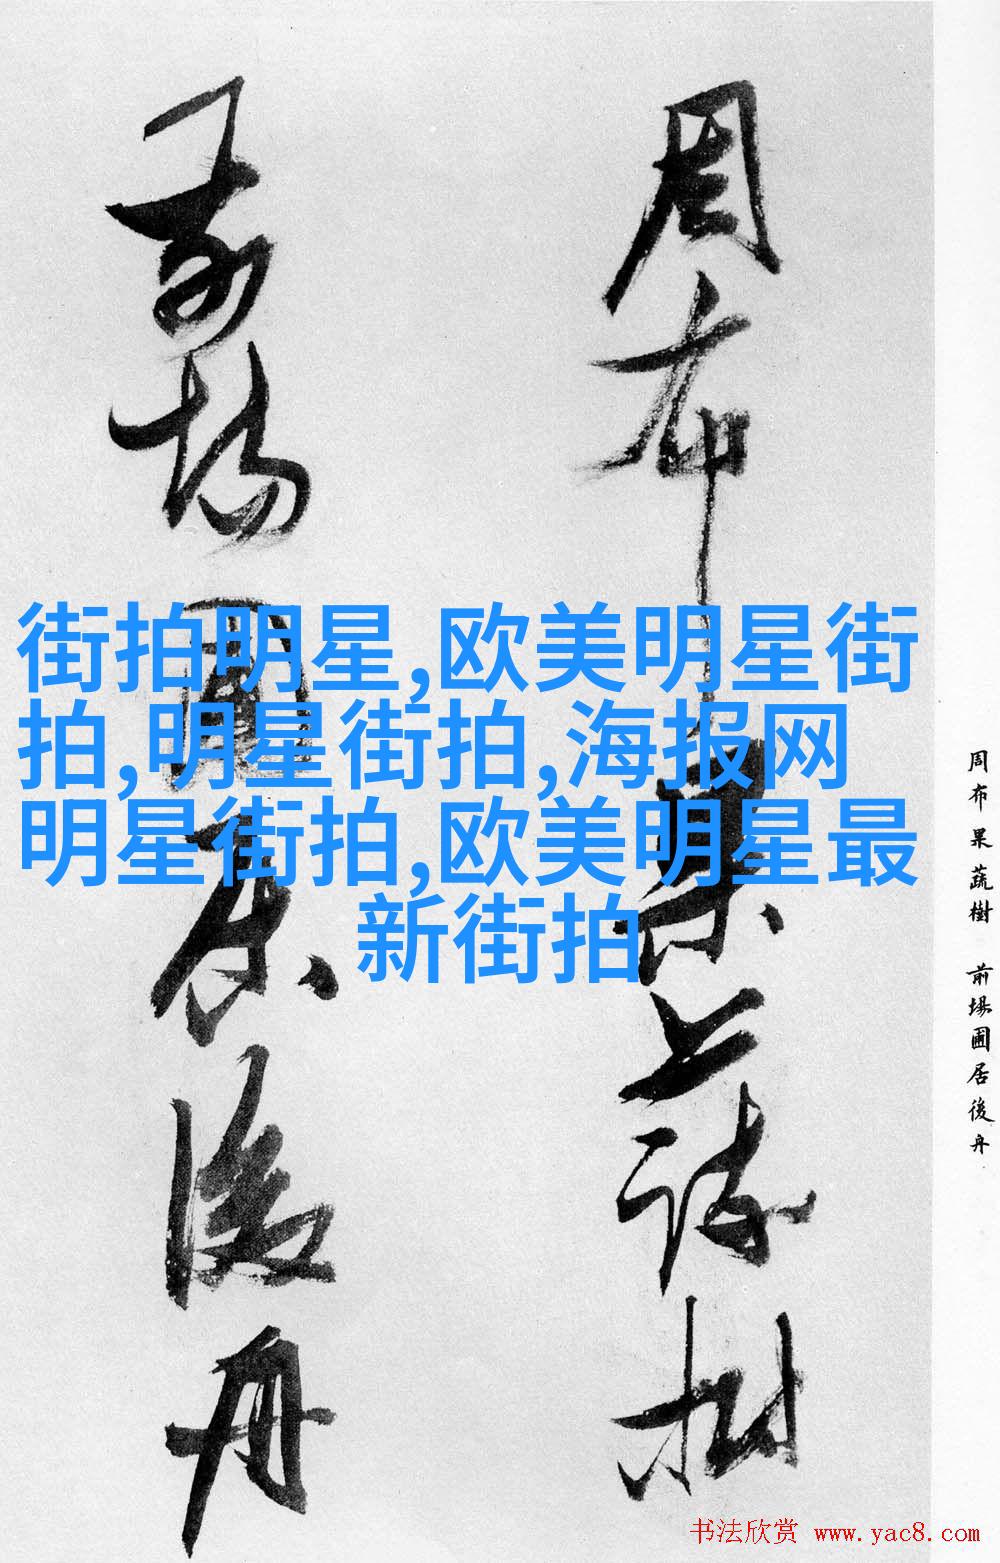 周布果蔬樹
前場圃居後舟
街拍明星,欧美明星街
拍,明星街拍,海报网
明星街拍,欧美明星最
新街拍
周布果蔬樹 前場圃居後舟
书法欣赏 www.yac8.com